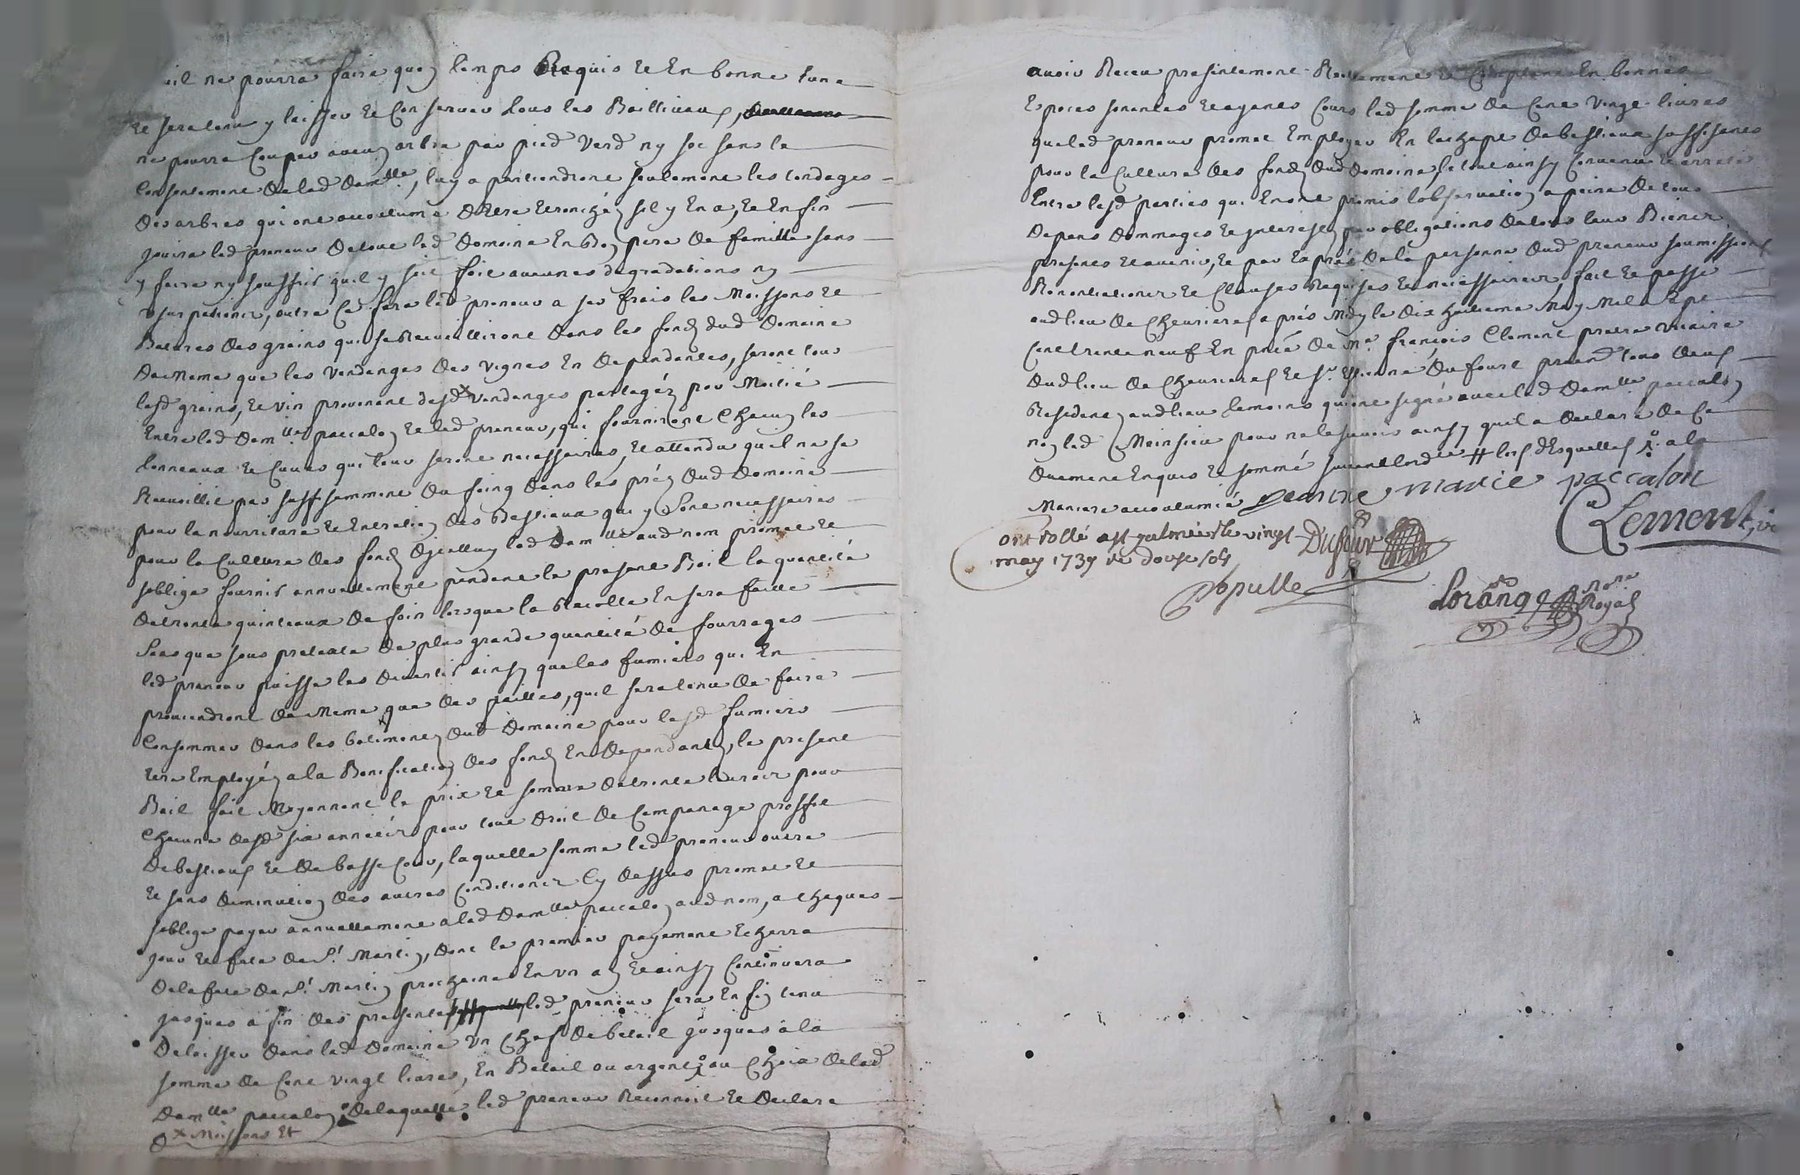 quil ne pourra faire quen temps Requis et En bonne lune
et sera tenu y laisser et Conserver tous les Bailliveaux,
ne pourra Couper aucun arbre par pied Verd ny sec sans le
Consentement de lad damlle, luy apartiendront seulement les tondages
des arbres qui ont accoutumé detre etronchéz sil y En a, et Enfin
jouira led preneur de tout led Domaine En Bon pere de famille sans
y faire ny souffrir quil y soit fait aucunes degradations ny
usurpations, outre Ce fera led preneur a ses frais les Moissons et
Batures des grains qui se Recueilliront dans les fonds dud Domaine
de Meme que les Vendanges des Vignes En dependantes, seront tous
lesd grains, et vin provenant desd x vendanges partagéz par Moitié
Entre lad damlle paccalon et led preneur, qui fourniront Chacun les
tonneaux et Cuves qui leur seront necessaires, Et attendu quil ne se
Recueillit pas suffisamment du foing dans les préz dud Domaine
pour la nourriture et Entretien des Bestiaux qui y sont necessaires
pour la Culture des fonds dicelluy lad damlle aud nom promet et
soblige fournir annuellement pendant le present Bail la quantité
de trente quintaux de foin lorsque la Recolte En sera faitte
sans que sous pretexte de plus grande quantité de fourrages
led preneur puisse les divertir ainsy que les fumiers qui En
proviendront de Meme que des pailles, quil sera tenu de faire
Consommer dans les batiments dud Domaine pour lesd fumiers
etre Employéz a la Bonification des fonds En dependants, le present
Bail fait Moyennant le prix et somme de trente livres pour
Chacune desd six années pour tout droit de Companage proffit
de bestiaux et de basse Cour, laquelle somme led preneur outre
et sans diminution des autres Conditions Cy dessus promet et
soblige payer annuellement a lad damlle paccalon aud nom, a Chaques
jour et fete de St Martin, dont le premier payement Echerra
de la fete de St Martin prochaine En un an et ainsy Continuera
jusques a fin des presentes led preneur sera Enfin tenu
de laisser dans led Domaine un Chef de betail jusques a la
somme de Cent vingt livres, En Betail ou argent, au Choix de lad
damlle paccalon de laquelle led preneur Reconnoit et declare
x Moissons Et
avoir Receu presentement Reellement et Comptant En bonnes
Especes sonantes et ayants Cours lad somme de Cent vingt livres
que led preneur promet Employer En lachapt de bestiaux suffisants
pour la Culture des fonds dud Domaine, le tout ainsy Convenu et arreté
Entre lesd parties qui En ont promis lobservation a peine de tous
depens dommages et interests, par obligations de tous leur Biens
presents et avenir, et par Exprés de la personne dud preneur soumissions
Renontiations et Clauses Requises et necessaires, fait et passé
aud lieu de Chevrieres aprés Midy le dix huitieme May Mil sept
Cent trente neuf En pnce de Me françois Clement pretre vicaire
dud lieu de Chevrieres et Sr Etienne Dufour praticd tous deux
Residents aud lieu temoins qui ont signé avec lad damlle paccalon
non led Moinsieu pour ne le savoir ainsy quil a declaré de Ce
duement Enquis et sommé suivant lordce # lors d'Esquelles a la
Maniere accoutumée Jeanne marie paccalon
Clement, vic
Controllé a st galmier le vingt
may 1739 re douse sols
Dufour
Populle
Lorange
notre Royal